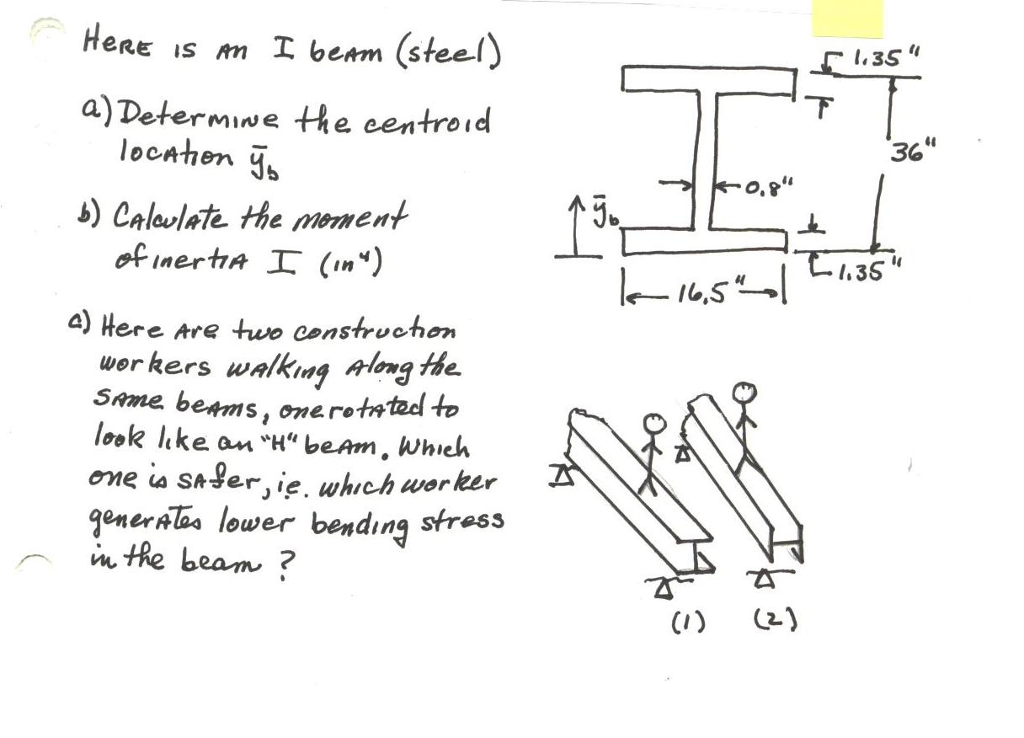 HERE IS AN I beAm (steel)
a) Determine the centroid
location ȳb
b) CAlculate the moment
of inertiA I (in⁴)
c) Here Are two construction
workers wAlking Along the
SAme beAms, one rotAted to
look like an "H" beAm. Which
one is SAfer, ie. which worker
generAtes lower bending stress
in the beam?
1.35"
36"
0.8"
ȳb
1.35"
16.5"
(1) (2)